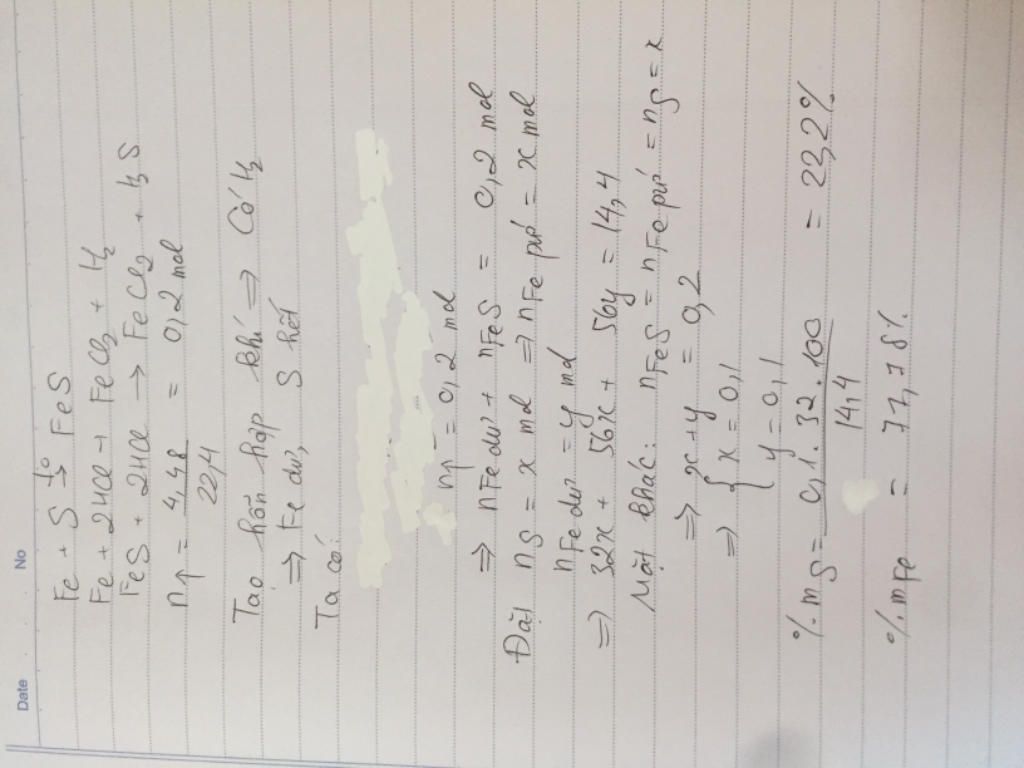 Date No
Fe + S t°→ FeS
Fe + 2HCl → FeCl2 + H2
FeS + 2HCl → FeCl2 + H2S
n↑ = 4,48 / 22,4 = 0,2 mol
Tạo hỗn hợp khí ⇒ Có H2
⇒ Fe dư, S hết
Ta có:
n↑ = 0,2 mol
⇒ nFe dư + nFeS = 0,2 mol
Đặt nS = x mol ⇒ nFe pứ = x mol
nFe dư = y mol
⇒ 32x + 56x + 56y = 14,4
Mặt khác: nFeS = nFe pứ = nS = x
⇒ x + y = 0,2
⇒ { x = 0,1
y = 0,1
% mS = 0,1.32.100 / 14,4 = 23,2%
% mFe = 77,78%